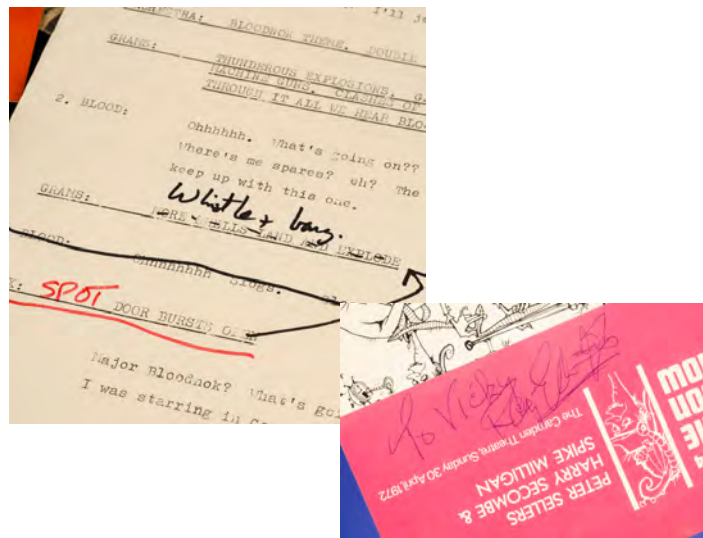 I'll
ORCHESTRA: BLOODNOK THEME. DOUBLE
GRAMS: THUNDEROUS EXPLOSIONS.
MACHINE GUNS. CLASHES OF
THROUGH IT ALL WE HEAR BLO
2. BLOOD: Ohhhhhh. What's going on??
Where's me spares? eh? The
keep up with this one.
Whistle + bang.
GRAMS: MORE SHELLS LAND AND EXPLODE
BLOOD: Ohhhhhhhh Slogs.
X: SPOT DOOR BURSTS OPEN
Major Bloodnok? What's goi
I was starring in
To Vicky
The Camden Theatre, Sunday 30 April, 1972
PETER SELLERS
HARRY SECOMBE &
SPIKE MILLIGAN